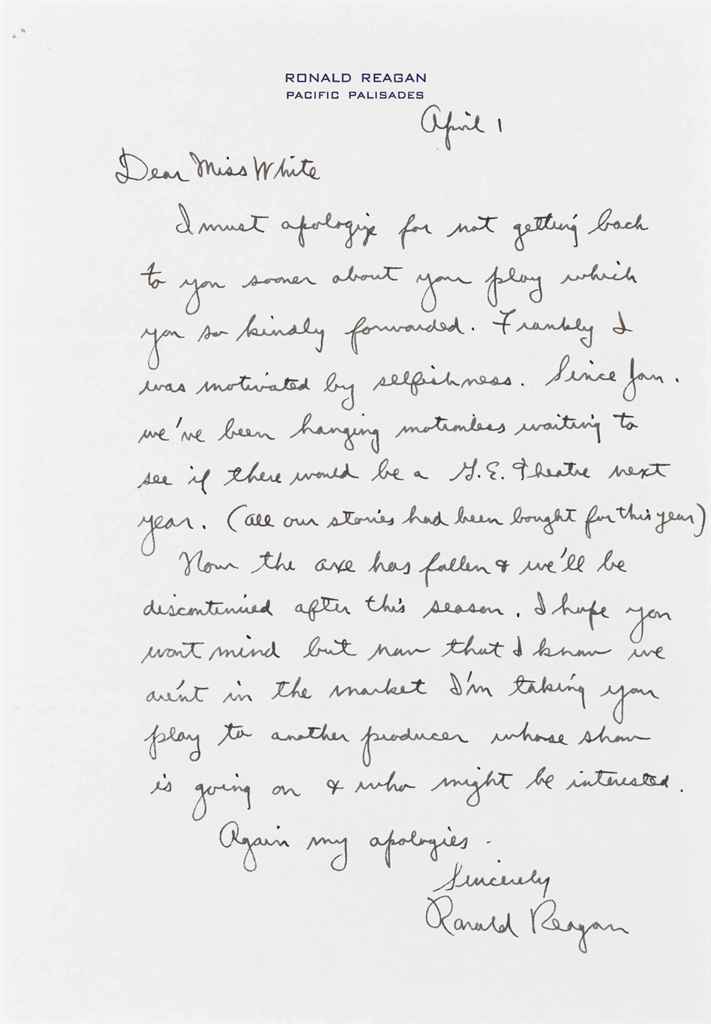 RONALD REAGAN
PACIFIC PALISADES
April 1
Dear Miss White
I must apologize for not getting back
to you sooner about your play which
you so kindly forwarded. Frankly I
was motivated by selfishness. Since Jan.
we've been hanging motionless waiting to
see if there would be a G.E. Theatre next
year. (all our stories had been bought for this year)
Now the axe has fallen & we'll be
discontinued after this season. I hope you
wont mind but now that I know we
aren't in the market I'm taking your
play to another producer whose show
is going on & who might be interested.
Again my apologies.
Sincerely
Ronald Reagan